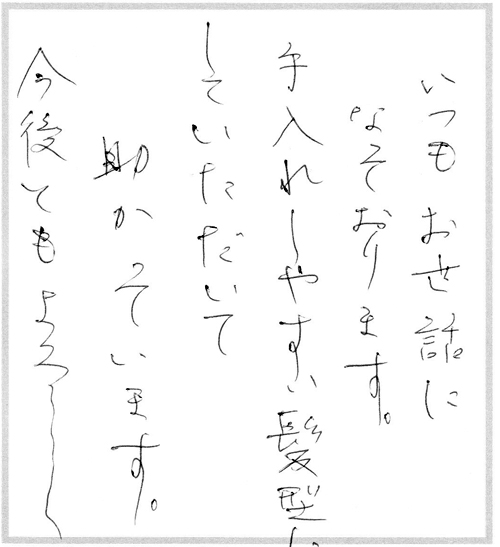 いつもお世話に
なっております。
手入れしやすい髪型に
していただいて
助かっています。
今後ともよろしく